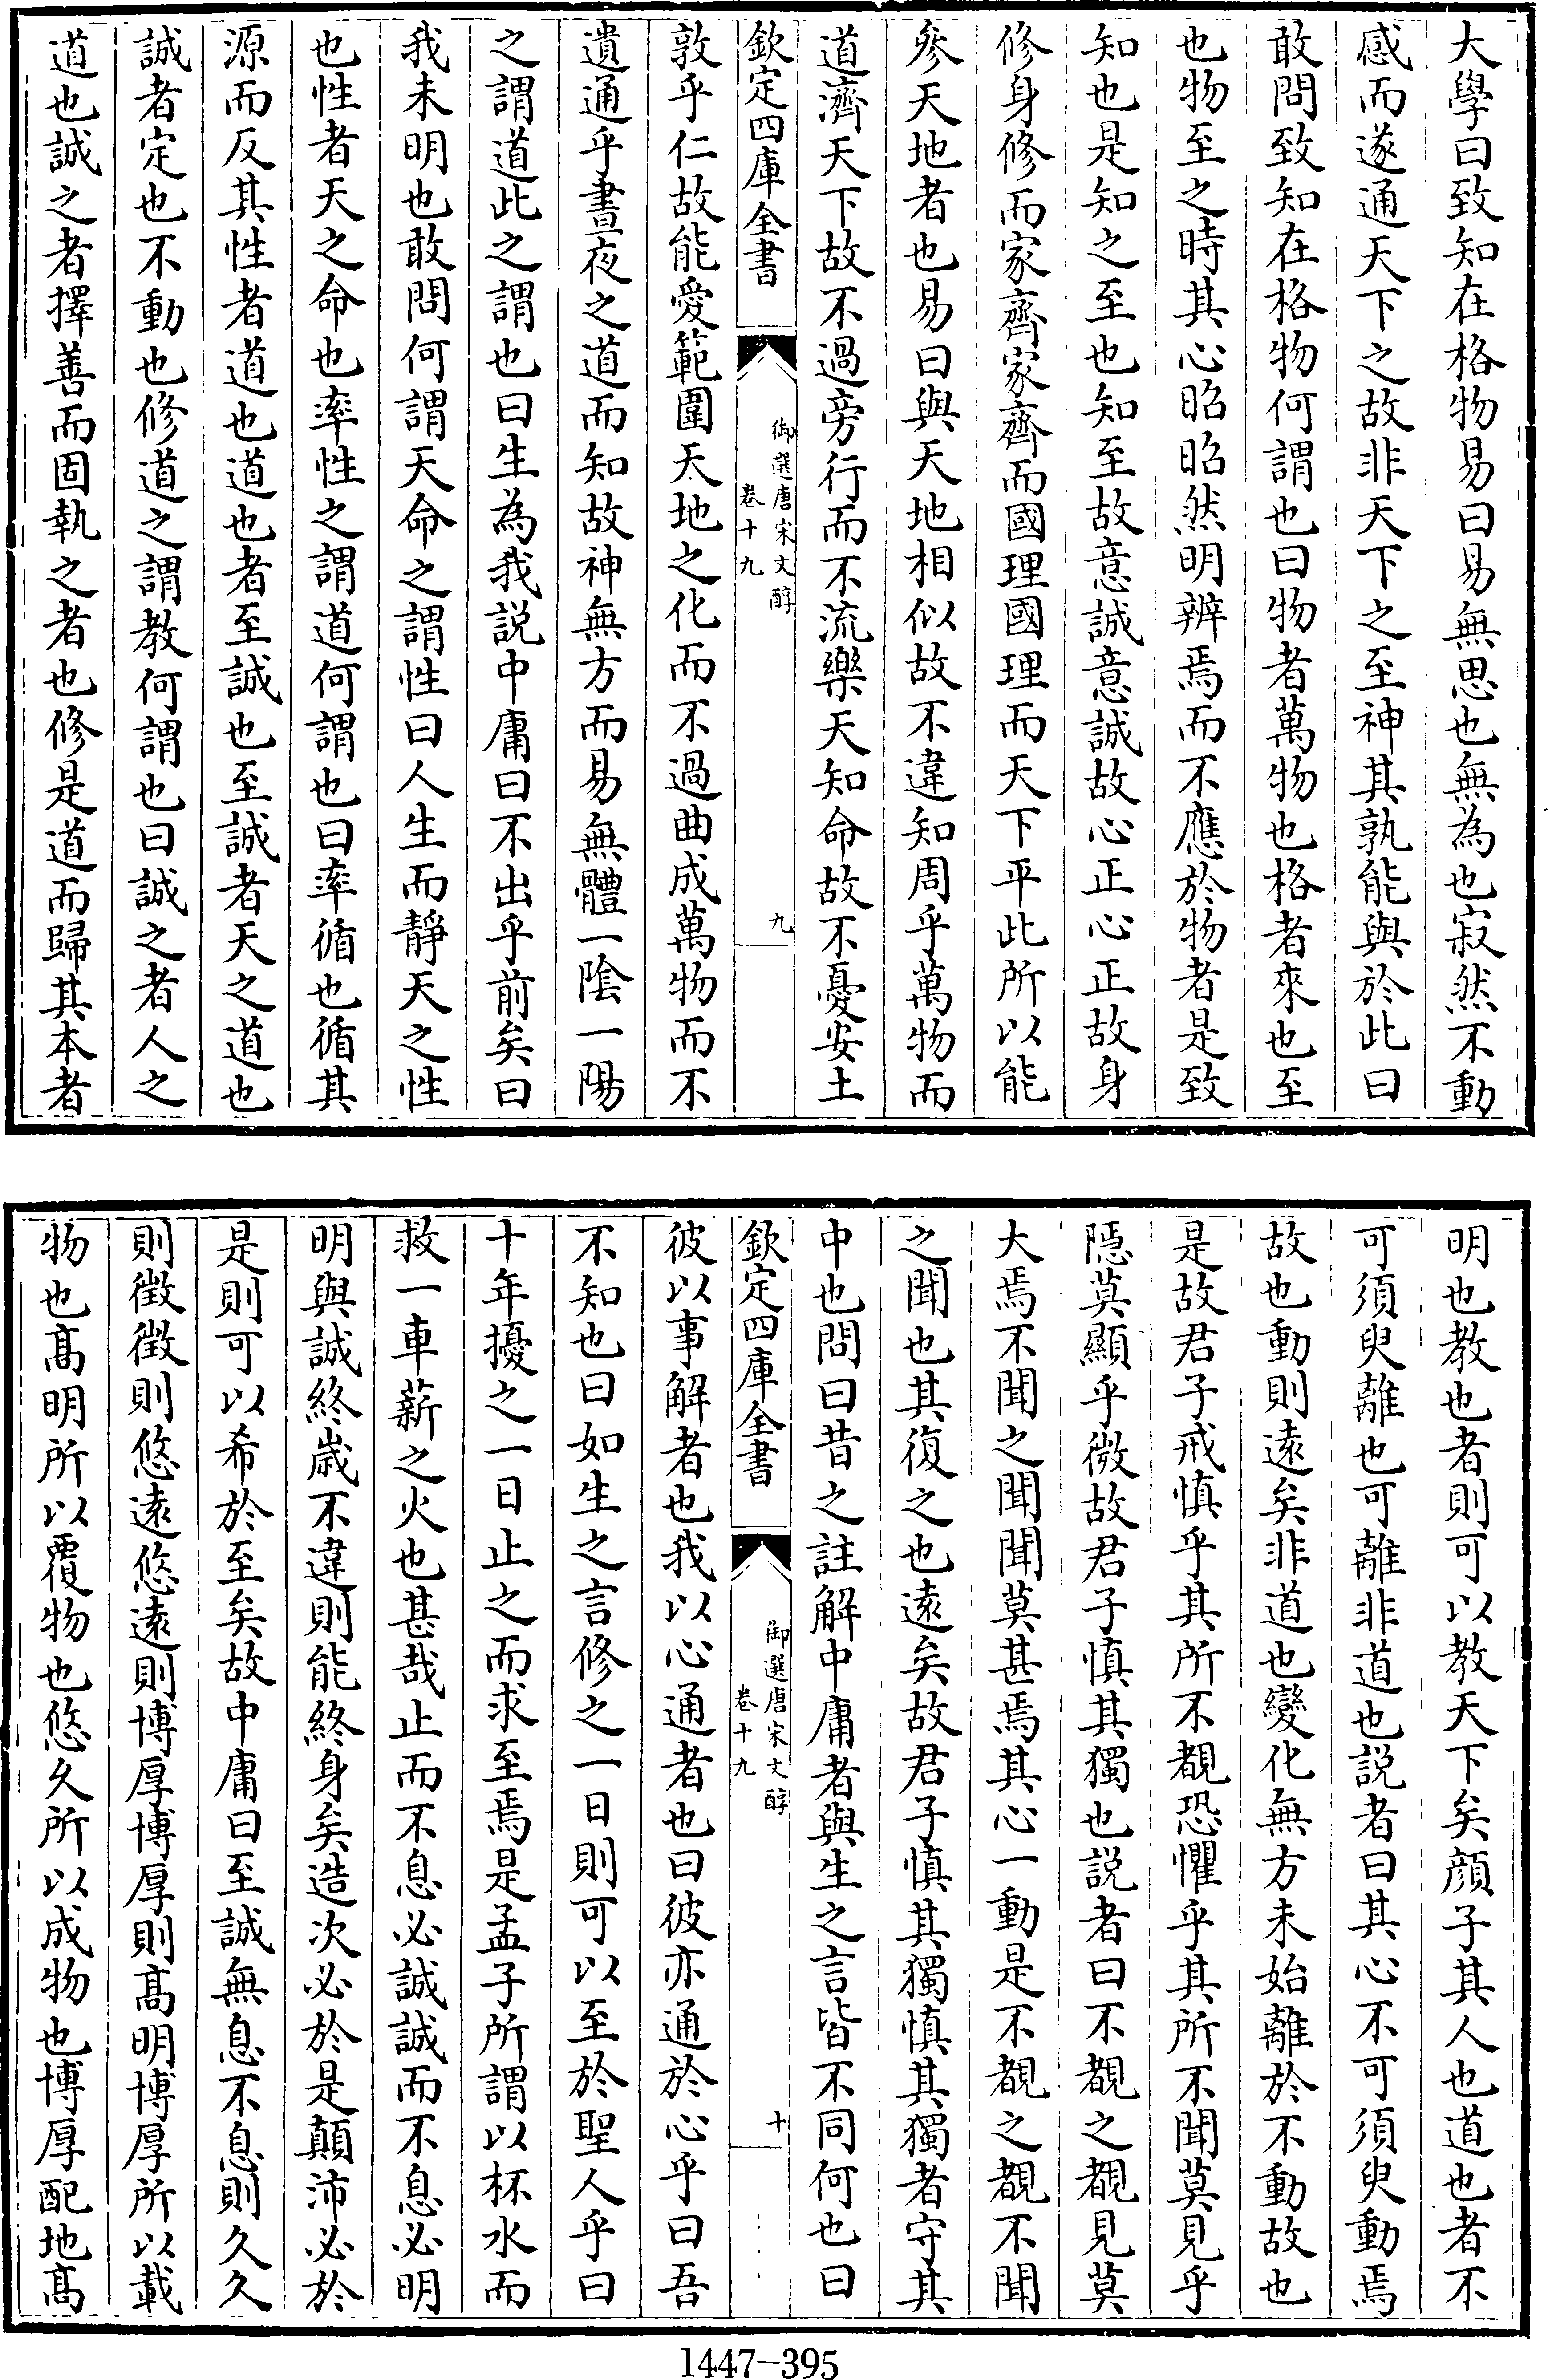 大學曰致知在格物易曰易無思也無為也寂然不動
感而遂通天下之故非天下之至神其孰能與於此曰
敢問致知在格物何謂也曰物者萬物也格者來也至
也物至之時其心昭昭然明辨焉而不應於物者是致
知也是知之至也知至故意誠意誠故心正心正故身
修身修而家齊家齊而國理國理而天下平此所以能
參天地者也易曰與天地相似故不違知周乎萬物而
道濟天下故不過旁行而不流樂天知命故不憂安土
欽定四庫全書
御選唐宋文醇
卷十九
九
敦乎仁故能愛範圍天地之化而不過曲成萬物而不
遺通乎晝夜之道而知故神無方而易無體一陰一陽
之謂道此之謂也曰生為我説中庸曰不出乎前矣曰
我未明也敢問何謂天命之謂性曰人生而靜天之性
也性者天之命也率性之謂道何謂也曰率循也循其
源而反其性者道也道也者至誠也至誠者天之道也
誠者定也不動也修道之謂教何謂也曰誠之者人之
道也誠之者擇善而固執之者也修是道而歸其本者
明也教也者則可以教天下矣顔子其人也道也者不
可須臾離也可離非道也説者曰其心不可須臾動焉
故也動則遠矣非道也變化無方未始離於不動故也
是故君子戒慎乎其所不覩恐懼乎其所不聞莫見乎
隱莫顯乎微故君子慎其獨也説者曰不覩之覩見莫
大焉不聞之聞聞莫甚焉其心一動是不覩之覩不聞
之聞也其復之也遠矣故君子慎其獨慎其獨者守其
中也問曰昔之註解中庸者與生之言皆不同何也曰
欽定四庫全書
御選唐宋文醇
卷十九
十
彼以事解者也我以心通者也曰彼亦通於心乎曰吾
不知也曰如生之言修之一日則可以至於聖人乎曰
十年擾之一日止之而求至焉是孟子所謂以杯水而
救一車薪之火也甚哉止而不息必誠誠而不息必明
明與誠終歲不違則能終身矣造次必於是顛沛必於
是則可以希於至矣故中庸曰至誠無息不息則久久
則徵徵則悠遠悠遠則博厚博厚則髙明博厚所以載
物也髙明所以覆物也悠久所以成物也博厚配地髙
1447-395